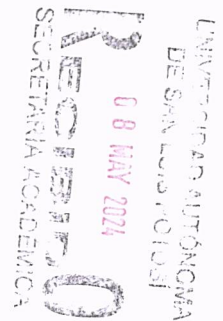 UNIVERSIDAD AUTÓNOMA
DE SAN LUIS POTOSÍ
08 MAY 2024
RECIBIDO
SECRETARÍA ACADÉMICA